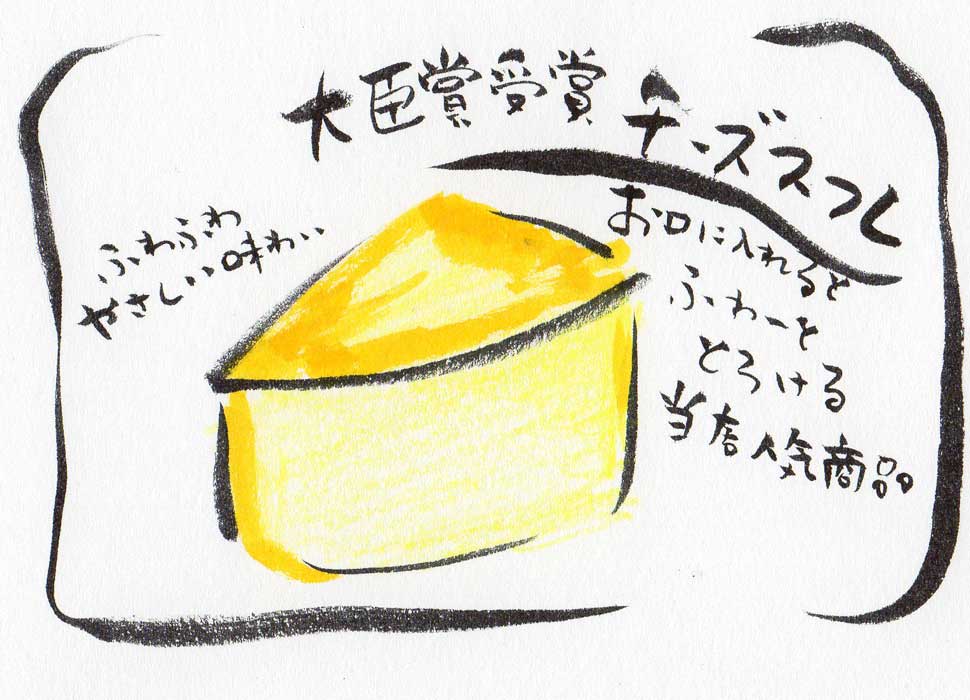 大臣賞受賞
チーズスフレ
ふわふわ
やさしい味わい
お口に入れると
ふわーを
とろける
当店人気商品